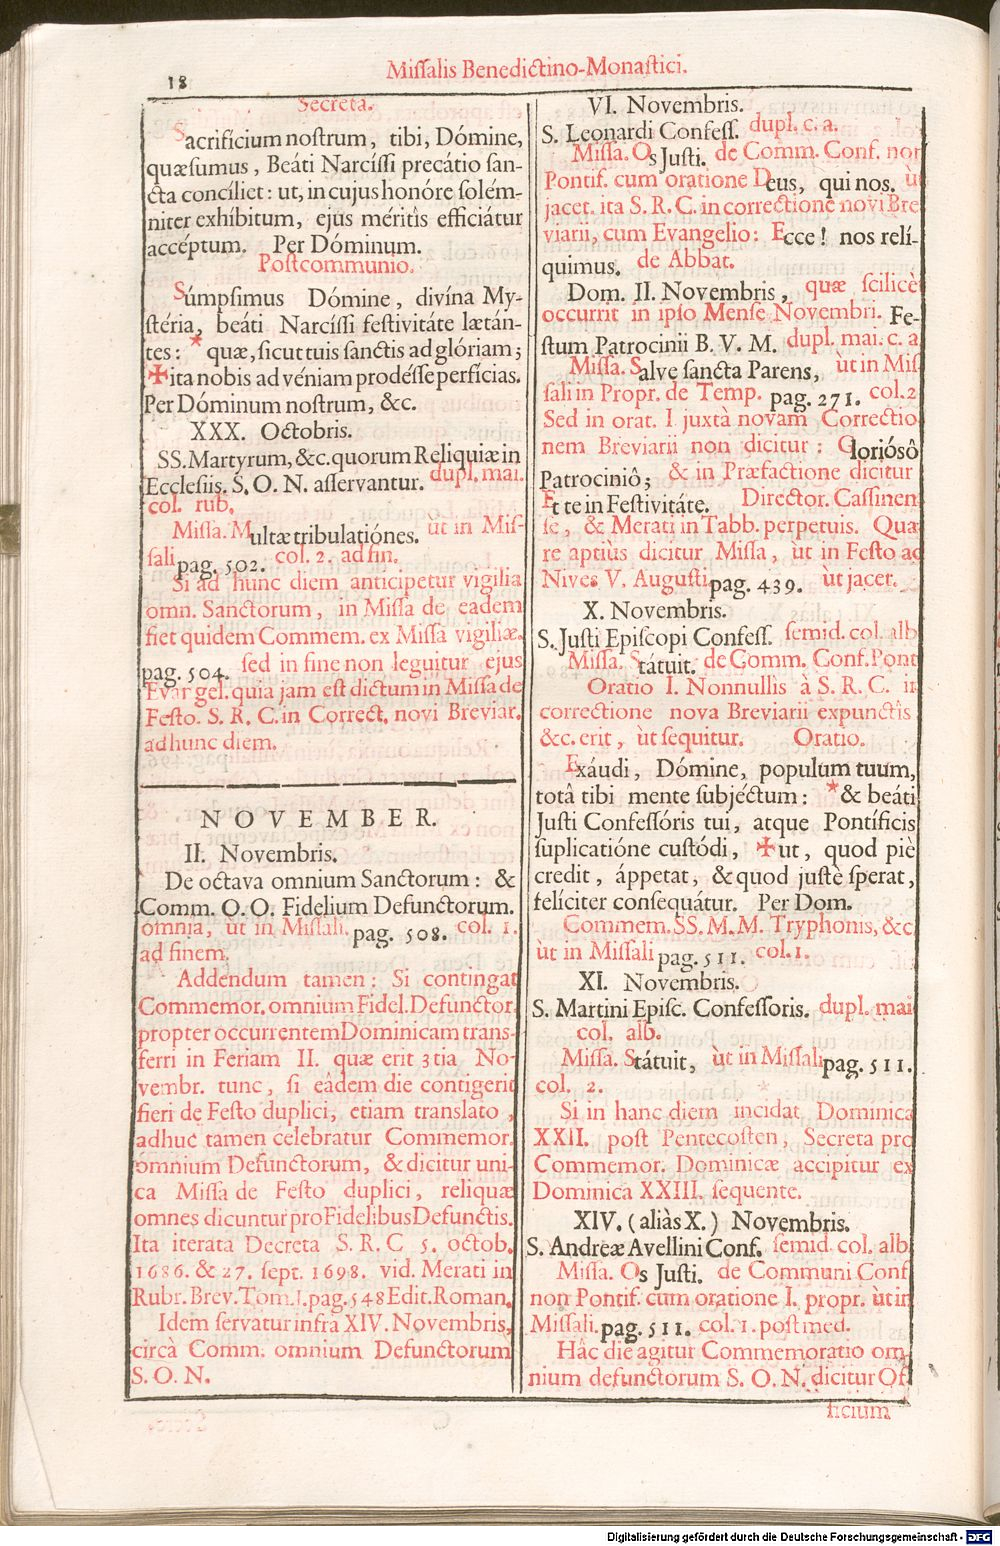 18
Missalis Benedictino-Monastici.
Secreta.
Sacrificium nostrum, tibi, Dómine,
quæsumus, Beáti Narcíssi precátio san-
cta concíliet: ut, in cujus honóre solém-
niter exhíbitum, ejus méritis efficiátur
accéptum. Per Dóminum.
Postcommunio.
Súmpsimus Dómine, divína My-
stéria, beáti Narcíssi festivitáte lætán-
tes: * quæ, sicut tuis sanctis ad glóriam;
✠ ita nobis ad véniam prodésse perfícias.
Per Dóminum nostrum, &c.
XXX. Octobris.
SS. Martyrum, &c. quorum Reliquiæ in
Ecclesiis. S. O. N. asservantur. dupl. mai.
col. rub.
Missa. Multæ tribulatiónes. ut in Mis-
sali pag. 502. col. 2. ad fin.
Si ad hunc diem anticipetur vigilia
omn. Sanctorum, in Missa de eadem
fiet quidem Commem. ex Missa vigiliæ.
pag. 504. sed in fine non leguitur ejus
Evangel. quia jam est dictum in Missa de
Festo. S. R. C. in Correct. novi Breviar.
ad hunc diem.
NOVEMBER.
II. Novembris.
De octava omnium Sanctorum: &
Comm. O. O. Fidelium Defunctorum.
omnia, ut in Missali. pag. 508. col. 1.
ad finem.
Addendum tamen: Si contingat
Commemor. omnium Fidel. Defunctor.
propter occurrentem Dominicam trans-
ferri in Feriam II. quæ erit 3tia No-
vembr. tunc, si eâdem die contigerit
fieri de Festo duplici, etiam translato,
adhuc tamen celebratur Commemor.
omnium Defunctorum, & dicitur uni-
ca Missa de Festo duplici, reliquæ
omnes dicuntur pro Fidelibus Defunctis.
Ita iterata Decreta S. R. C 5. octob.
1686. & 27. sept. 1698. vid. Merati in
Rubr. Brev. Tom. I. pag. 548 Edit. Roman.
Idem servatur infrà XIV. Novembris,
circà Comm. omnium Defunctorum
S. O. N.
VI. Novembris.
S. Leonardi Confess. dupl. c. a.
Missa. Os Justi. de Comm. Conf. non
Pontif. cum oratione Deus, qui nos. ut
jacet. ita S. R. C. in correctione novi Bre
viarii, cum Evangelio: Ecce! nos relí-
quimus. de Abbat.
Dom. II. Novembris, quæ scilicè
occurrit in ipso Mense Novembri. Fe-
stum Patrocinii B. V. M. dupl. mai. c. a
Missa. Salve sancta Parens, ùt in Mis
sali in Propr. de Temp. pag. 271. col. 2
Sed in orat. I. juxtà novam Correctio
nem Breviarii non dicitur: Gloriósô
Patrociniô; & in Præfactione dicitur
Et te in Festivitáte. Director. Cassinen
se, & Merati in Tabb. perpetuis. Qua
re aptiùs dicitur Missa, ùt in Festo ad
Nives V. Augusti pag. 439. ùt jacet.
X. Novembris.
S. Justi Episcopi Confess. semid. col. alb
Missa. Státuit. de Comm. Conf. Pont
Oratio I. Nonnullis à S. R. C. in
correctione nova Breviarii expunctis
&c. erit, ùt sequitur. Oratio.
Exáudi, Dómine, populum tuum,
totâ tibi mente subjéctum: * & beáti
Justi Confessóris tui, atque Pontíficis
suplicatióne custódi, ✠ ut, quod piè
credit, áppetat, & quod justè sperat,
felíciter consequátur. Per Dom.
Commem. SS. M. M. Tryphonis, &c
ùt in Missali pag. 511. col. 1.
XI. Novembris.
S. Martini Episc. Confessoris. dupl. mai
col. alb.
Missa. Státuit, ùt in Missali pag. 511.
col. 2.
Si in hanc diem incidat Dominica
XXII. post Pentecosten, Secreta pro
Commemor. Dominicæ accipitur ex
Dominica XXIII. sequente.
XIV. (aliàs X.) Novembris.
S. Andreæ Avellini Conf. semid. col. alb
Missa. Os Justi. de Communi Conf
non Pontif. cum oratione I. propr. ùt in
Missali. pag. 511. col. 1. post med.
Hâc die agitur Commemoratio om
nium defunctorum S. O. N. dicitur Of
ficium
Digitalisierung gefördert durch die Deutsche Forschungsgemeinschaft - DFG